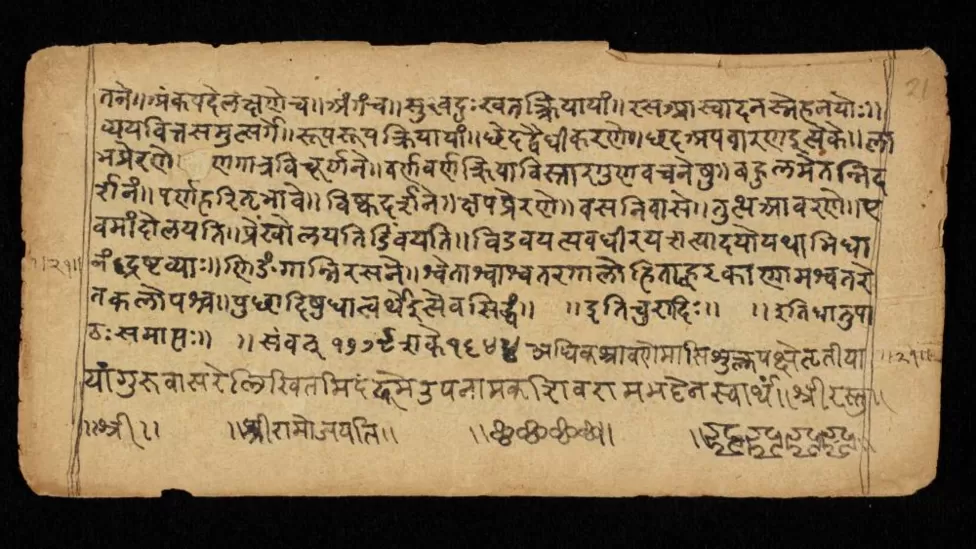 तने॥अंकपदेलक्षणेच॥अंगंच॥सुखदुःखतत्क्रियायां॥रसआस्वादनस्नेहनयोः॥
व्ययवित्तसमुत्सर्गे॥रूपरूपक्रियायां॥छेदद्वैधीकरणे॥छदअपवारणइत्येके॥ला
भप्रेरणे॥ णगात्रविचूर्णने॥वर्णवर्णक्रियाविस्तारगुणवचनेषु॥बहुलमेतन्निद
र्शनं॥पर्णहरितभावे॥विष्कदर्शने॥क्षपप्रेरणे॥वसनिवासे॥तुत्थआवरणे॥ए
वमांदोलयति॥प्रेंखोलयतिडिंबयति॥विडंबयत्यवधीरयत्यादयोयथाभिधा
नंद्रष्टव्याः॥णिङंगान्निरसने॥श्वेताश्वाश्वतरगालोहिताह्वरकाणामश्वतरे
तकलोपश्च॥पुछादिषुधात्वर्थइत्येवसिद्धं॥ ॥इतिचुरादिः॥ ॥इतिधातुपा
ठःसमाप्तः॥ ॥संवत् १७७९ शके१६४४ अधिकश्रावणेमासिशुक्लपक्षेतृतीया
यांगुरुवासरेलिखितमिदं उपनामक रामभट्टेनस्वार्थं॥श्रीरस्तु॥
॥श्री॥ ॥श्रीरामोजयति॥
॥२१॥
॥२१॥
21